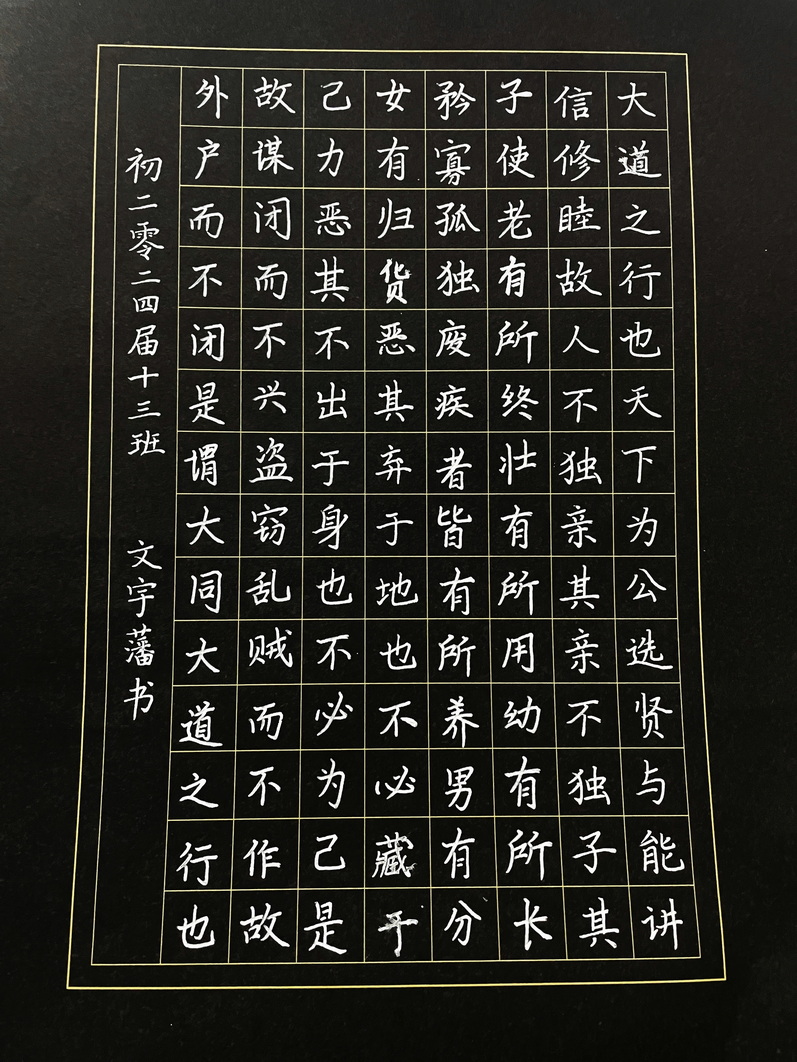 大道之行也天下为公选贤与能讲
信修睦故人不独亲其亲不独子其
子使老有所终壮有所用幼有所长
矜寡孤独废疾者皆有所养男有分
女有归货恶其弃于地也不必藏于
己力恶其不出于身也不必为己是
故谋闭而不兴盗窃乱贼而不作故
外户而不闭是谓大同大道之行也
初二零二四届十三班 文宇藩书